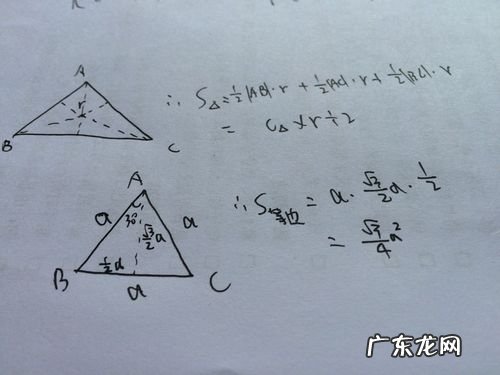 A
r
B
C
∴ S△=½|AB|·r+½|AC|·r+½|BC|·r
= C△×r÷2
A
a
30°
a
√3/2 a
½a
B
a
C
∴ S等边 = a·√3/2 a·1/2
= √3/4 a²
广东龙网